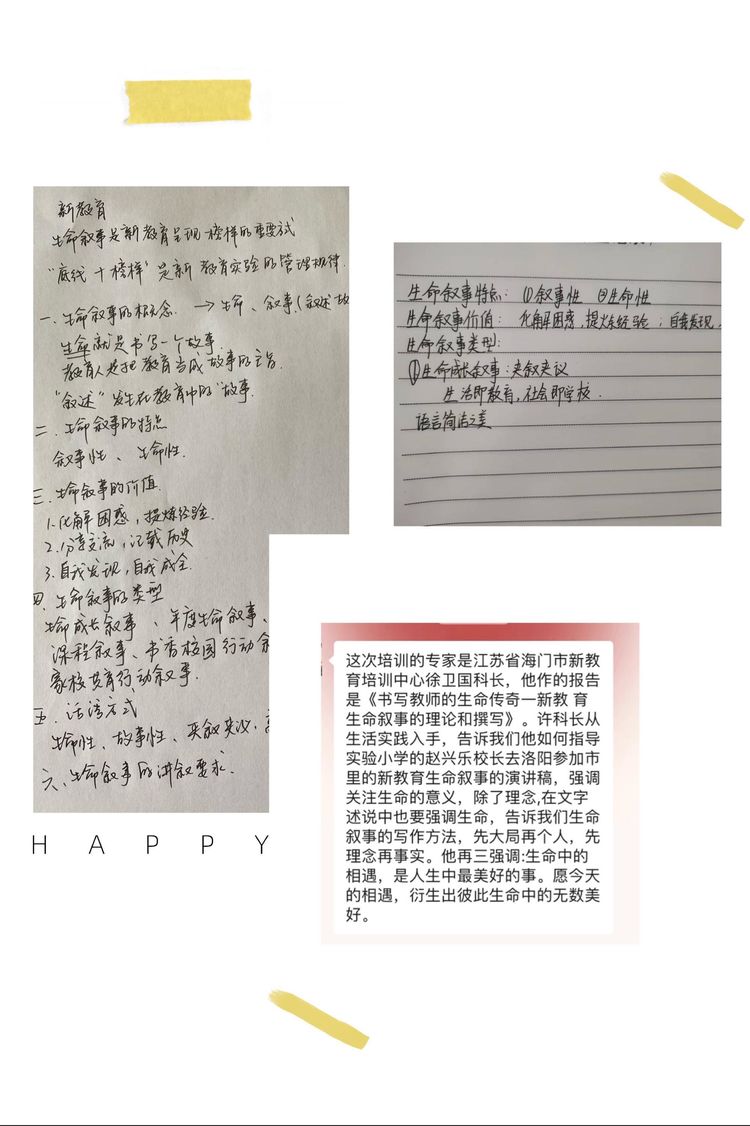 新教育
生命叙事是新教育呈现榜样的重要式
"底线+榜样"是新教育实验的管理规律.
一.生命叙事的概念. → 生命、叙事(叙述故
生命就是书写一个故事.
教育人是把教育当成故事的主旨.
"叙述"发生在教育中的"故事.
二.生命叙事的特点
叙事性、生命性.
三.生命叙事的价值.
1.化解困惑,提炼经验.
2.分享交流,记载历史
3.自我发现,自我成全.
四、生命叙事的类型
生命成长叙事、年度生命叙事、
课程叙事、书香校园行动叙
家校共育行动叙事.
五.话语方式
生命性、故事性、夹叙夹议、
六、生命叙事的讲叙要求.
生命叙事特点: ①叙事性 ②生命性
生命叙事价值: 化解困惑,提炼经验;自我发现,
生命叙事类型:
①生命成长叙事:夹叙夹议
生活即教育,社会即学校.
语言简洁之美
HAPPY
这次培训的专家是江苏省海门市新教
育培训中心徐卫国科长，他作的报告
是《书写教师的生命传奇一新教 育
生命叙事的理论和撰写》。许科长从
生活实践入手，告诉我们他如何指导
实验小学的赵兴乐校长去洛阳参加市
里的新教育生命叙事的演讲稿，强调
关注生命的意义，除了理念,在文字
述说中也要强调生命，告诉我们生命
叙事的写作方法，先大局再个人，先
理念再事实。他再三强调:生命中的
相遇，是人生中最美好的事。愿今天
的相遇，衍生出彼此生命中的无数美
好。